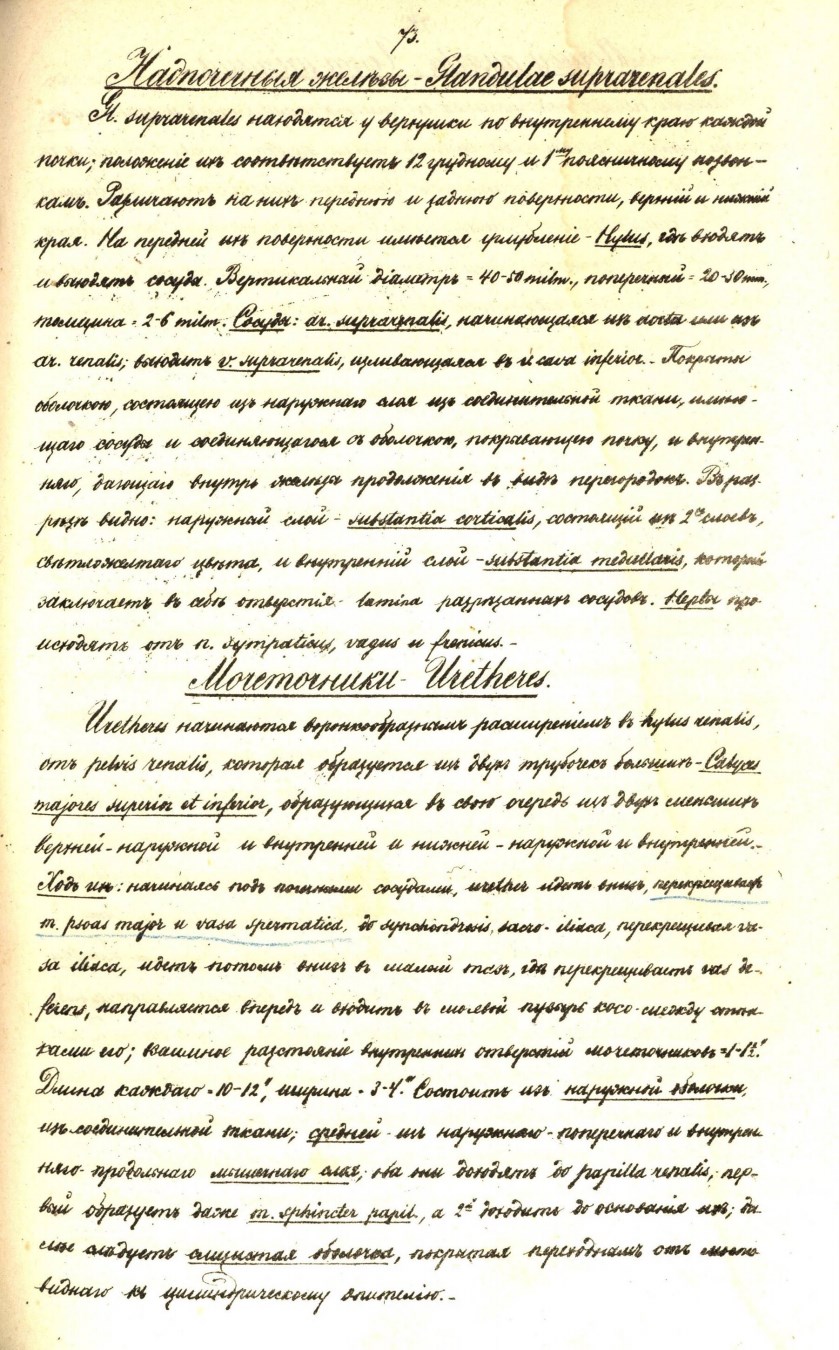 73.
Надпочечныя желѣзы - Glandulae suprarenales.
Gl. suprarenales находятся у верхушки по внутреннему краю каждой
почки; положеніе ихъ соотвѣтствуетъ 12 грудному и 1му поясничному позвон-
камъ. Различаютъ на нихъ переднюю и заднюю поверхности, верхній и нижній
края. На передней ихъ поверхности имѣется углубленіе - Hylus, гдѣ входятъ
и выходятъ сосуды. Вертикальный діаметръ = 40-50 milm., поперечный = 20-30 mm.,
толщина = 2-6 milm. Сосуды: ar. suprarenalis, начинающаяся изъ aorta или изъ
ar. renalis; выходитъ v. suprarenalis, изливающаяся въ v. cava inferior. - Покрыты
оболочкою, состоящею изъ наружнаго слоя изъ соединительной ткани, имѣю-
щаго сосуды и соединяющагося съ оболочкою, покрывающею почку, и внутрен-
няго, дающаго внутрь железы продолженія въ видѣ перегородокъ. Въ раз-
рѣзѣ видно: наружный слой - substantia corticalis, состоящій изъ 2хъ слоевъ,
свѣтложелтаго цвѣта, и внутренній слой - substantia medullaris, который
заключаетъ въ себѣ отверстія - lumina разрѣзанныхъ сосудовъ. Нервы про-
исходятъ отъ n. sympaticus, vagus и frenicus. -
Мочеточники - Uretheres.
Uretheres начинаются воронкообразнымъ расширеніемъ въ hylus renalis,
отъ pelvis renalis, которая образуется изъ двухъ трубочекъ большихъ - Calyces
majores superior et inferior, образующихся въ свою очередь изъ двухъ меньшихъ
верхней - наружной и внутренней и нижней - наружной и внутренней. -
Ходъ ихъ: начинаясь подъ почечными сосудами, urether идетъ внизъ, перекрещивая
m. psoas major и vasa spermatica, до synchondrosis sacro-iliaca, перекрещивая va-
sa iliaca, идетъ потомъ внизъ въ малый тазъ, гдѣ перекрещиваетъ vas de-
ferens, направляется впередъ и входитъ въ мочевой пузырь косо между стѣн-
ками его; взаимное разстояніе внутреннихъ отверстій мочеточниковъ = 1-1½".
Длина каждаго = 10-12", ширина = 3-4'". Состоитъ изъ наружной оболочки,
изъ соединительной ткани; средней - изъ наружнаго - поперечнаго и внутрен-
няго - продольнаго мышечнаго слоя; оба они доходятъ до papilla renalis, пер-
вый образуетъ даже m. sphincter papil., а 2й доходитъ до основанія ихъ; да-
лѣе слѣдуетъ слизистая оболочка, покрытая переходнымъ отъ
виднаго къ цилиндрическому эпителію. -